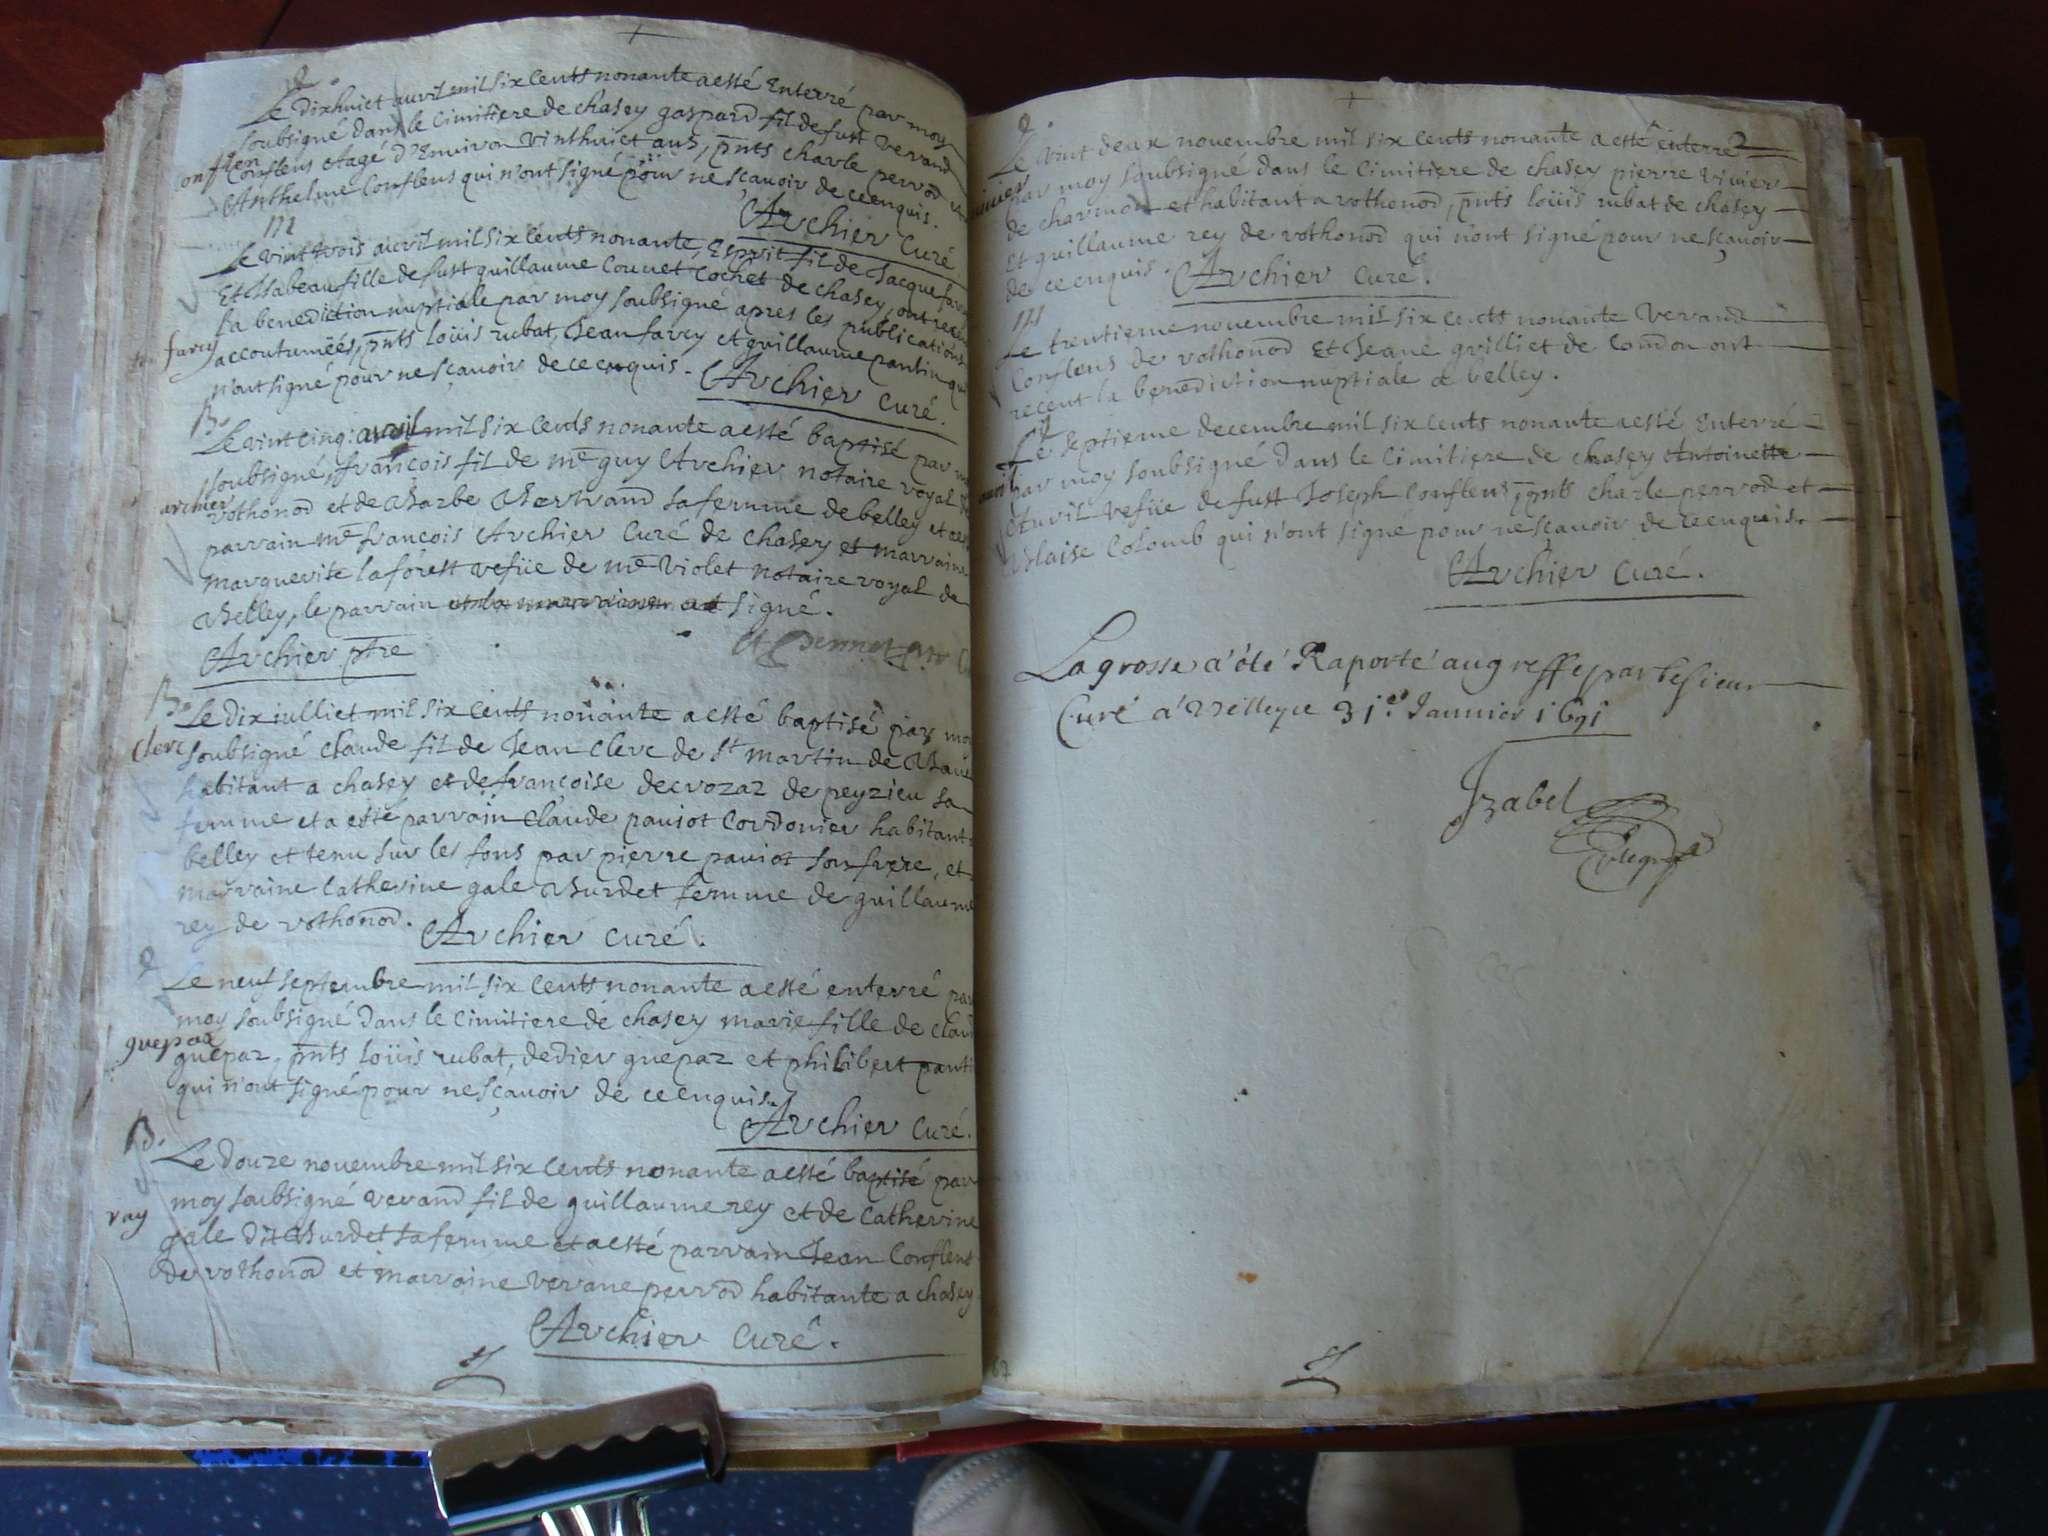 Le dixhuict auvril mil six cents nonante a esté Enterré par moy
soubsigné dans le cimitiere de chasey gaspard fil de fust verand
conflens Aagé d'Environ vinthuict ans, pnts charle perrod
Anthelme Conflens qui n'ont signé pour ne sçavoir de ce enquis.
Archier curé
M
Le vint trois auvril mil six cents nonante, Esprit fil de Jacque farcy
Et Isabeau fille de fust guillaume Couuet Cochet de chasey, ont receu
la benediction nuptiale par moy soubsigné apres les publications
farcy
accoutumées, pnts loüis rubat, Jean farcy et guillaume pantin qui
n'ont signé pour ne sçavoir de ce enquis.
Archier curé.
B.
Le vint cinq: avril mil six cents nonante a esté baptisé par moy
soubsigné, françois fil de me guy Archier notaire royal de
archier
vothonod et de Barbe Bertrand sa femme de belley et a esté
parrain me francois Archier Curé de chasey et marraine
marguerite laforest vefüe de me Violet notaire royal de
Belley, le parrain signé.
Archier ptre
B.
Le dix iulliet mil six cents nonante a esté baptisé par moy
Clerc
soubsigné claude fil de Jean Clerc de st martin de Bauel
habitant a chasey et de françoise decrozaz de peyzieu sa
femme et a esté parrain Claude pauiot Cordonier habitant
belley et tenu sur les fons par pierre pauiot son frere, et
marraine Catherine gale Burdet femme de guillaume
rey de vothonod.
Archier curé.
Le neuf septembre mil six cents nonante a esté enterré par
moy soubsigné dans le cimitiere de chasey marie fille de claude
guepaz
guepaz, pnts loüis rubat, dedier guepaz et philibert pantin
qui n'ont signé pour ne sçavoir de ce enquis.
Archier curé.
B.
Le douze novembre mil six cents nonante a esté baptisé par
moy soubsigné verand fil de guillaume rey et de Catherine
ray
gale dit Burdet sa femme et a esté parrain Jean Conflens
de vothonod et marraine verane perrod habitante a chasey
Archier curé.
Le vint deux novembre mil six cents nonante a esté enterré
par moy soubsigné dans le cimitiere de chasey pierre vivier
de charmon et habitant a vothonod, pnts loüis rubat de chasey
et guillaume rey de vothonod qui n'ont signé pour ne sçavoir
de ce enquis. Archier curé.
M
Le trentieme novembre mil six cents nonante Verand
Conflens de vothonod Et Jeane grilliet de Condon ont
receut la benediction nuptiale a belley.
Le septieme decembre mil six cents nonante a esté Enterré
par moy soubsigné dans le cimitiere de chasey Antoinette
Auvril vefüe de fust Joseph Conflens, pnts charle perrod et
Blaise Colomb qui n'ont signé pour ne sçavoir de ce enquis.
Archier curé.
La grosse a été Raporté au greffe par le sieur
Curé a Belley ce 31e. Janvier 1691
Izabel
67